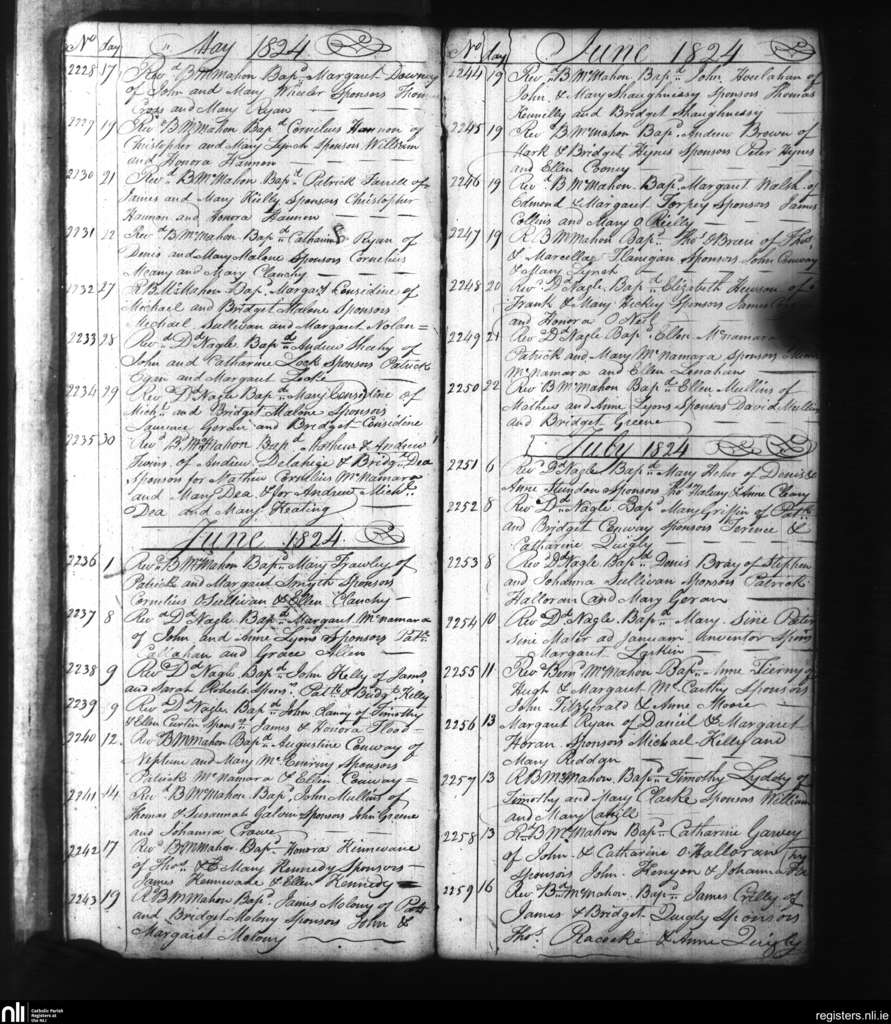 No day May 1824
2228 17 Revd. B McMahon Bapd. Margaret Downey
of John and Mary Wheeler Sponsors Thomas
and Mary Ryan
2229 19 Revd. B McMahon Bapd. Cornelius Hannon of
Christopher and Mary Lynch Sponsors William
and Honora Hannon
2130 21 Revd. B McMahon Bapd. Patrick Farrell of
James and Mary Rielly Sponsors Christopher
Hannon and Honora Hannon
2231 22 Revd. B McMahon Bapd. Catharine Ryan of
Denis and Mary Malone Sponsors Cornelius
Meany and Mary Clanchy
2232 27 R B McMahon Bapd. Margat Considine of
Michael and Bridget Malone Sponsors
Michael Sullivan and Margaret Nolan
2233 28 Revd. Dd. Nagle Bapd. Andrew Sheehy of
John and Catharine Sponsors Patrick
Egan and Margaret
2234 29 Revd. D Nagle Bapd. Mary Considine of
Michl. and Bridget Malone Sponsors
Laurence and Bridget Considine
2235 30 Revd. B. McMahon Bapd. Mathew & Andrew
Twins of Andrew Delahige & Bridgt. Dea
Sponsors for Mathew Cornelius McNamara
and Mary Dea & for Andrew Michl.
Dea and Mary Keating
June 1824
2236 1 Revd. B McMahon Bapd. Mary Frawley of
Patrick and Margaret Smyth Sponsors
Cornelius OSullivan & Ellen Clanchy
2237 8 Revd. Dd. Nagle Bapd. Margaret McNamara
of John and Anne Lyons Sponsors Patk.
Callahan and Grace Allen
2238 9 Revd. D Nagle Bapd. John Kelly of James
and Sarah Roberts Sponrs. Patk. & Bridgt. Kelly
2239 9 Revd. D Nagle Bapd. John Clancy of Timothy
& Ellen Curtin Sponsrs. James & Honora Flood
2240 12 Revd. B McMahon Bapd. Augustine Conway of
Neptune and Mary McEnerny Sponsors
Patrick McNamara & Ellen Conway
2241 14 Revd. B McMahon Bapd. John Mullins of
Thomas & Susannah Galvin Sponsors John Greene
and Johanna Crowe
2242 17 Revd. B McMahon Bapd. Honora Hinnevane
of Thos. & Mary Kennedy Sponsors
James Hennevade & Ellen Kennedy
2243 19 R B McMahon Bapd. James Molony of Patk
and Bridget Molony Sponsors John &
Margaret Molony
No day June 1824
2244 19 Revd. B McMahon Bapd. John Houlahan of
John & Mary Shaughnessy Sponsors Thomas
Kennelly and Bridget Shaughnessy
2245 19 Revd. B McMahon Bapd. Andrew Brown of
Mark & Bridget Hynes Sponsors Peter Hynes
and Ellen Cooney
2246 19 Revd. B McMahon Bapd. Margaret Walsh of
Edmond & Margaret Torpey Sponsors James
Collins and Mary O Rielly
2247 19 R. B McMahon Bapd. Thos. OBrien of Thos.
& Marcella Flanigan Sponsors John Conway
& Mary Lynch
2248 20 Revd. D Nagle Bapd. Elizabeth Hewson of
Frank & Mary Hickey Sponsors James
and Honora O Neil
2249 21 Revd. Dd. Nagle Bapd. Ellen McNamara
Patrick and Mary McNamara Sponsors
McNamara and Ellen Lenahan
2250 22 Revd. B McMahon Bapd. Ellen Mullins of
Mathew and Anne Lyons Sponsors David Mullins
and Bridget Greene
July 1824
2251 6 Revd. D Nagle Bapd. Mary Hehir of Denis &
Anne Sponsors Thos. & Anne Cleary
2252 8 Revd. Dd. Nagle Bapd. Mary Griffin of Patk.
and Bridget Conway Sponsors Terence &
Catharine Quigly
2253 8 Revd. Dd. Nagle Bapd. Denis Bray of Stephen
and Johanna Sullivan Sponsors Patrick
Halloran and Mary Goran
2254 10 Revd. Dd. Nagle Bapd. Mary. Sine Pater
Sine Mater ad Januam Inventor Sponsr
Margaret Larkin
2255 11 Revd. Bernd. McMahon Bapd. Anne Tierny of
Hugh & Margaret McCarthy Sponsors
John Fitzgerald & Anne Moore
2256 13 Margaret Ryan of Daniel & Margaret
Horan Sponsors Michael Kelly and
Mary Reddan
2257 13 R B McMahon Bapd. Timothy Lyddy of
Timothy and Mary Clarke Sponsors William
and Mary Cahill
2258 13 R. B McMahon Bapd. Catharine Garvey
of John & Catharine O Halloran
Sponsors John Henyon & Johanna
2259 16 Revd. B McMahon Bapd. James Crilly of
James & Bridget Quigly Sponsors
Thos. Racocke & Anne Quigly
nli Catholic Parish
Registers at
the NLI
registers.nli.ie